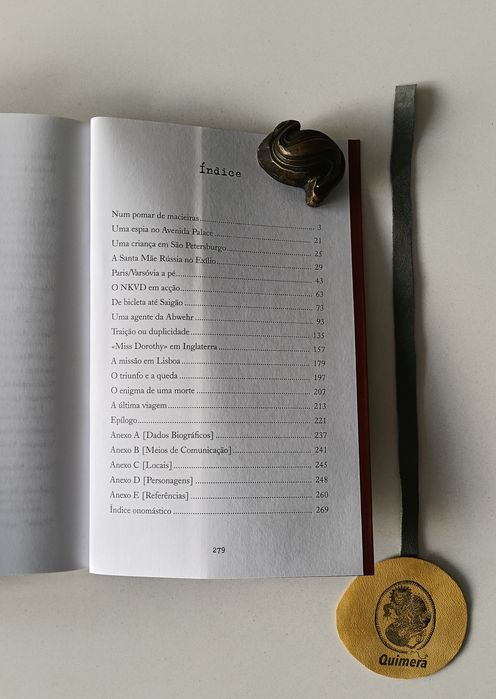 Índice
Num pomar de macieiras 3
Uma espia no Avenida Palace 21
Uma criança em São Petersburgo 25
A Santa Mãe Rússia no Exílio 29
Paris/Varsóvia a pé 43
O NKVD em acção 63
De bicleta até Saigão 73
Uma agente da Abwehr 93
Traição ou duplicidade 135
«Miss Dorothy» em Inglaterra 157
A missão em Lisboa 179
O triunfo e a queda 197
O enigma de uma morte 207
A última viagem 213
Epílogo 221
Anexo A [Dados Biográficos] 237
Anexo B [Meios de Comunicação] 241
Anexo C [Locais] 245
Anexo D [Personagens] 248
Anexo E [Referências] 260
Índice onomástico 269
279
Quimera